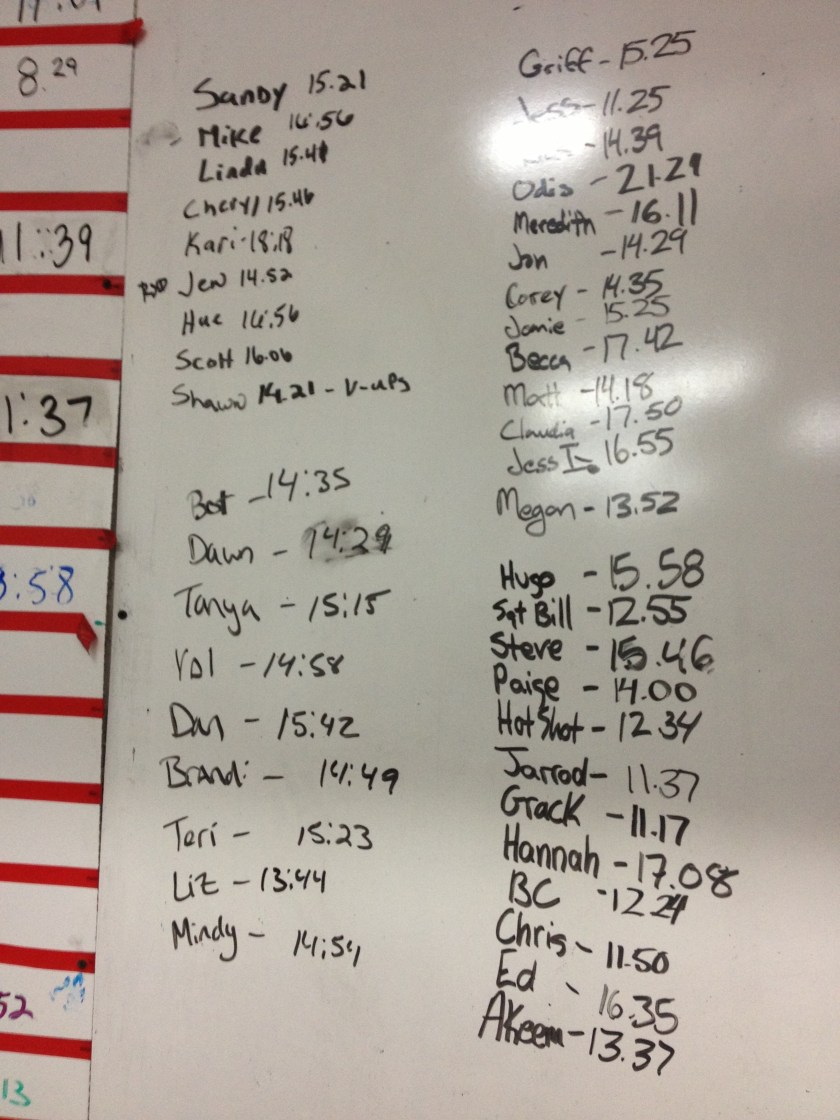 8.29
11:39
1:37
3:58
52
13
Sandy 15.21
Mike 16:56
Linda 15.41
Cheryl 15.46
Kari-18:18
RXD Jen 14.52
Hue 16:56
Scott 16.06
Shawn 14.21 - V-ups
Bet - 14:35
Dawn - 14:29
Tanya - 15:15
Val - 14:58
Dan - 15:42
Brandi - 14:49
Teri - 15:23
Liz - 13:44
Mindy - 14:54
Griff - 15.25
Jess - 11.25
- 14.39
Odis - 21.29
Meredith - 16.11
Jon - 14.29
Corey - 14.35
Jamie - 15.25
Becca - 17.42
Matt - 14.18
Claudia - 17.50
Jess I - 16.55
Megan - 13.52
Hugo - 15.58
Sgt Bill - 12.55
Steve - 15.46
Paige - 14.00
Hot Shot - 12.34
Jarrod - 11.37
Grack - 11.17
Hannah - 17.08
BC - 12.24
Chris - 11.50
Ed - 16.35
AKeem - 13.37